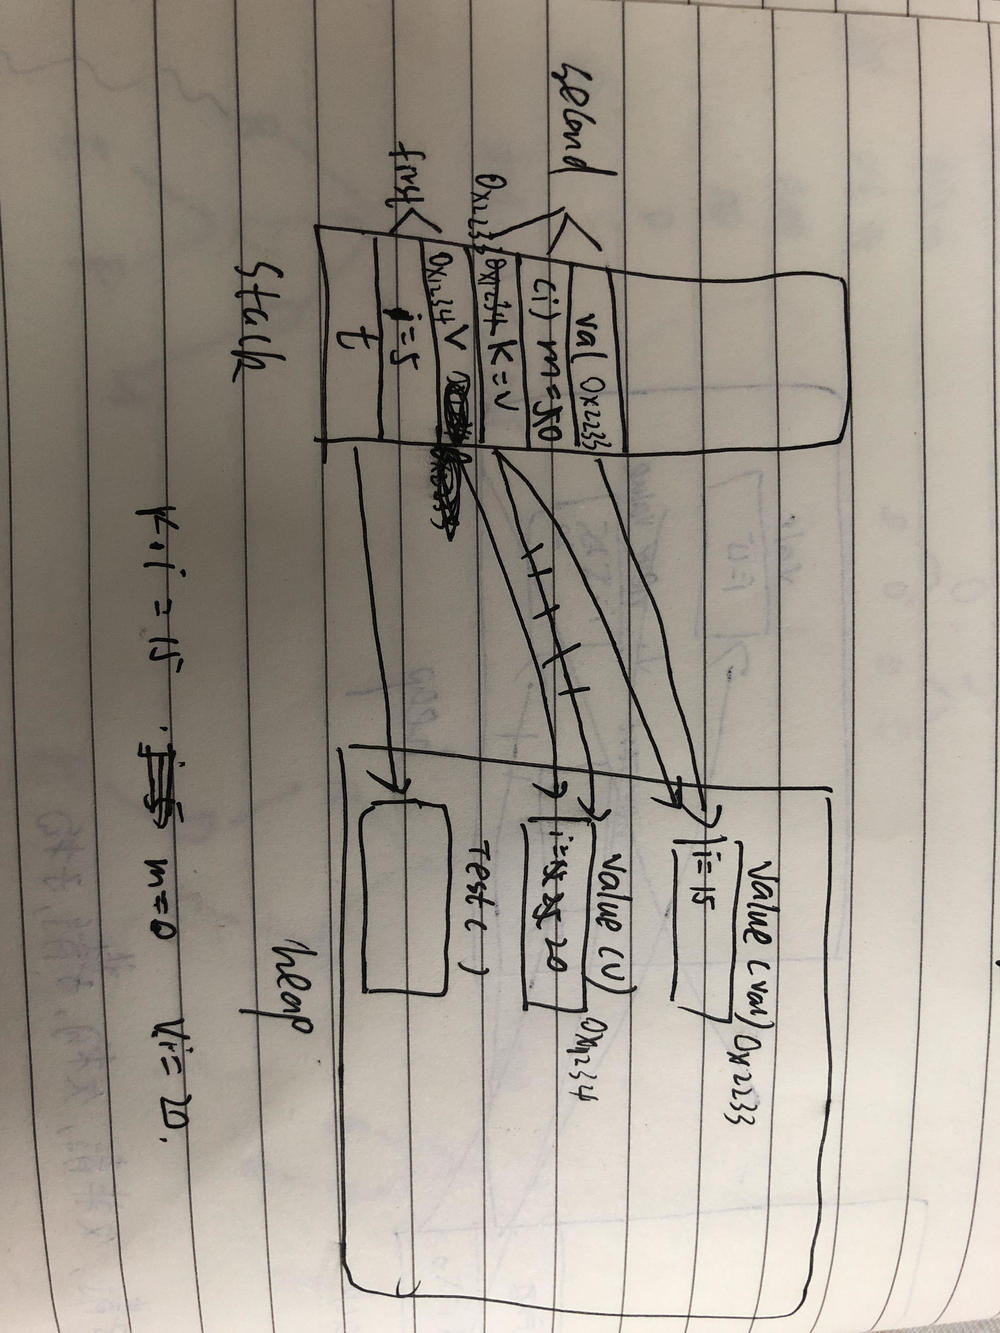 second
val 0x2233
(i) m=50
0x2233 0x1234 k=v
first
0x1234 v
i=5
t
stack
Value (val) 0x2233
i=15
Value (v) 0x1234
i=15 25 20
Test ( )
heap
k.i=15 m=0 v.i=20.